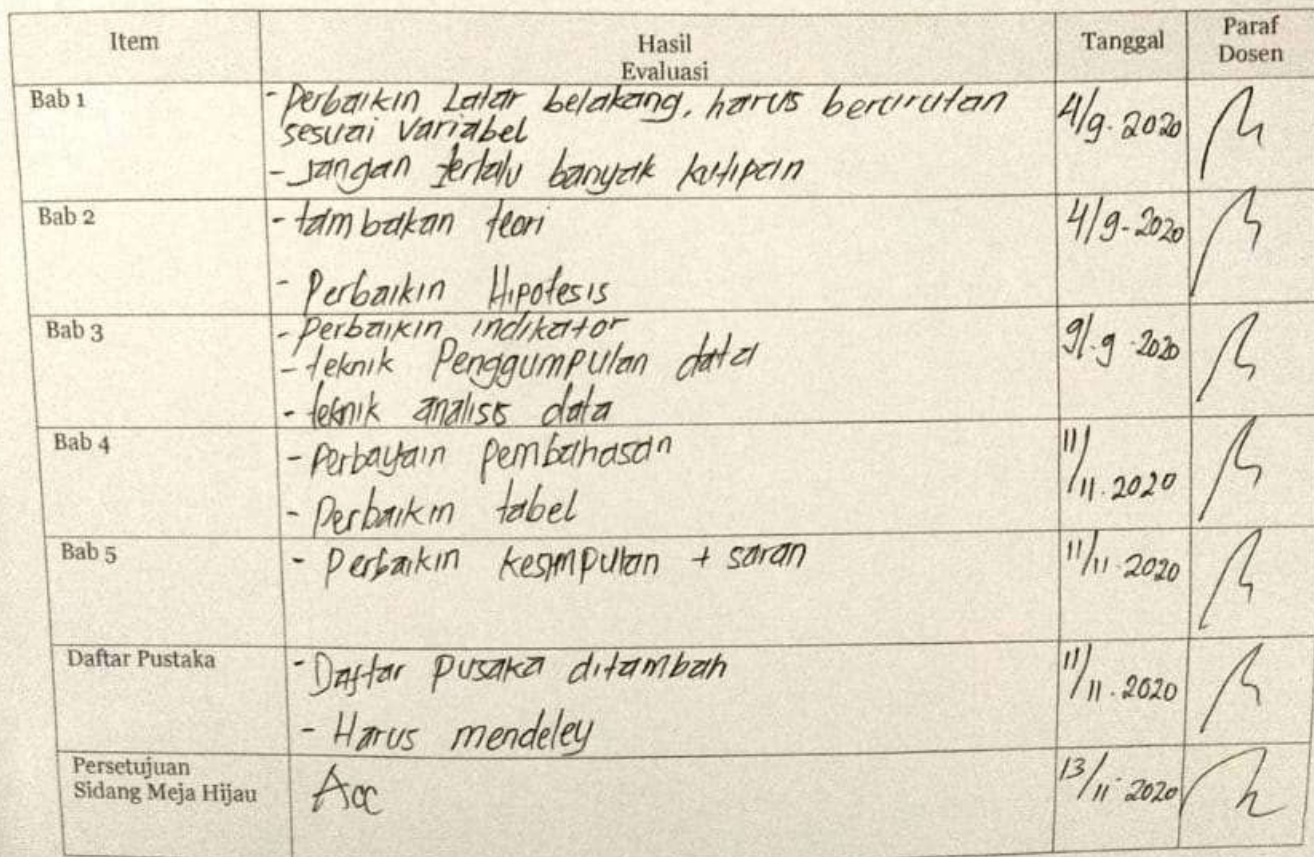 Item
Hasil
Evaluasi
Tanggal
Paraf
Dosen
Bab 1
- Perbaikin Latar belakang, harus berurutan
sesuai variabel
- Jangan terlalu banyak kutipan
4/9-2020
Bab 2
- tambakan teori
- Perbaikin Hipotesis
4/9-2020
Bab 3
- Perbaikin indikator
- teknik Penggumpulan data
- teknik analisis data
9/-9-2020
Bab 4
- Perbayain pembahasan
- Perbaikin tabel
11/11.2020
Bab 5
- Perbaikin kesimpulan + saran
11/11-2020
Daftar Pustaka
- Daftar pusaka ditambah
- Harus mendeley
11/11.2020
Persetujuan
Sidang Meja Hijau
Acc
13/11-2020